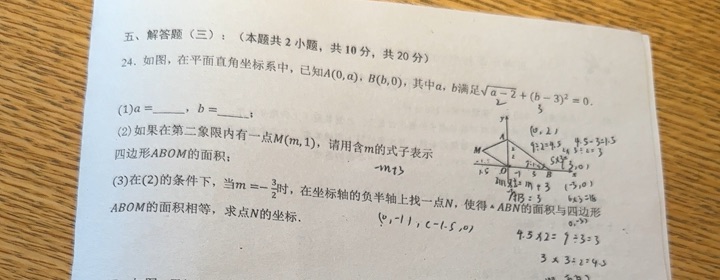 五、解答题（三）：（本题共 2 小题，共 10 分，共 20 分）
24. 如图，在平面直角坐标系中，已知A(0,a)，B(b,0)，其中a，b满足√a−2+(b−3)²=0.
2 3
(1)a =_____，b =_____；
(2)如果在第二象限内有一点M(m,1)，请用含m的式子表示
四边形ABOM的面积；
-m+3
(3)在(2)的条件下，当m=−3/2时，在坐标轴的负半轴上找一点N，使得△ABN的面积与四边形
ABOM的面积相等，求点N的坐标.
(0,-1), (-1.5,0)
y
A
M
O
B
(0,2)
9÷2=4.5
4.5-3=1.5
m+3
(-3,0)
4.5×2=9÷3=3
3×3÷2=4.5